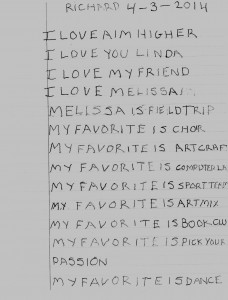 RICHARD 4-3-2014
I LOVE AIM HIGHER
I LOVE YOU LINDA
I LOVE MY FRIEND
I LOVE MELISSA
MELLISSA IS FIELDTRIP
MY FAVORITE IS CHOIR
MY FAVORITE IS ARTCRAF
MY FAVORITE IS COMPUTER LA
MY FAVORITE IS SPORT TEAM
MY FAVORITE IS ARTMIX
MY FAVORITE IS BOOK CLU
MY FAVORITE IS PICK YOUR
PASSION
MY FAVORITE IS DANCE